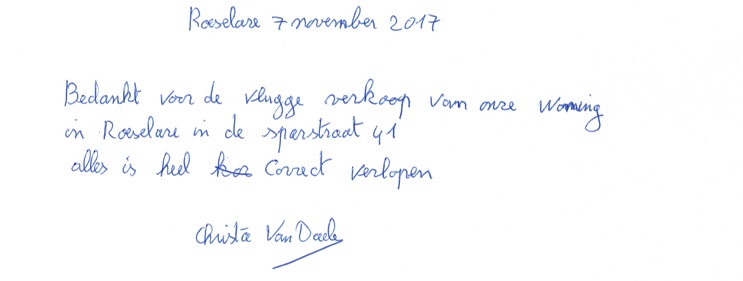 Roeselare 7 november 2017
Bedankt voor de vlugge verkoop van onze woning
in Roeselare in de sparstraat 41
alles is heel correct verlopen
Van Daele